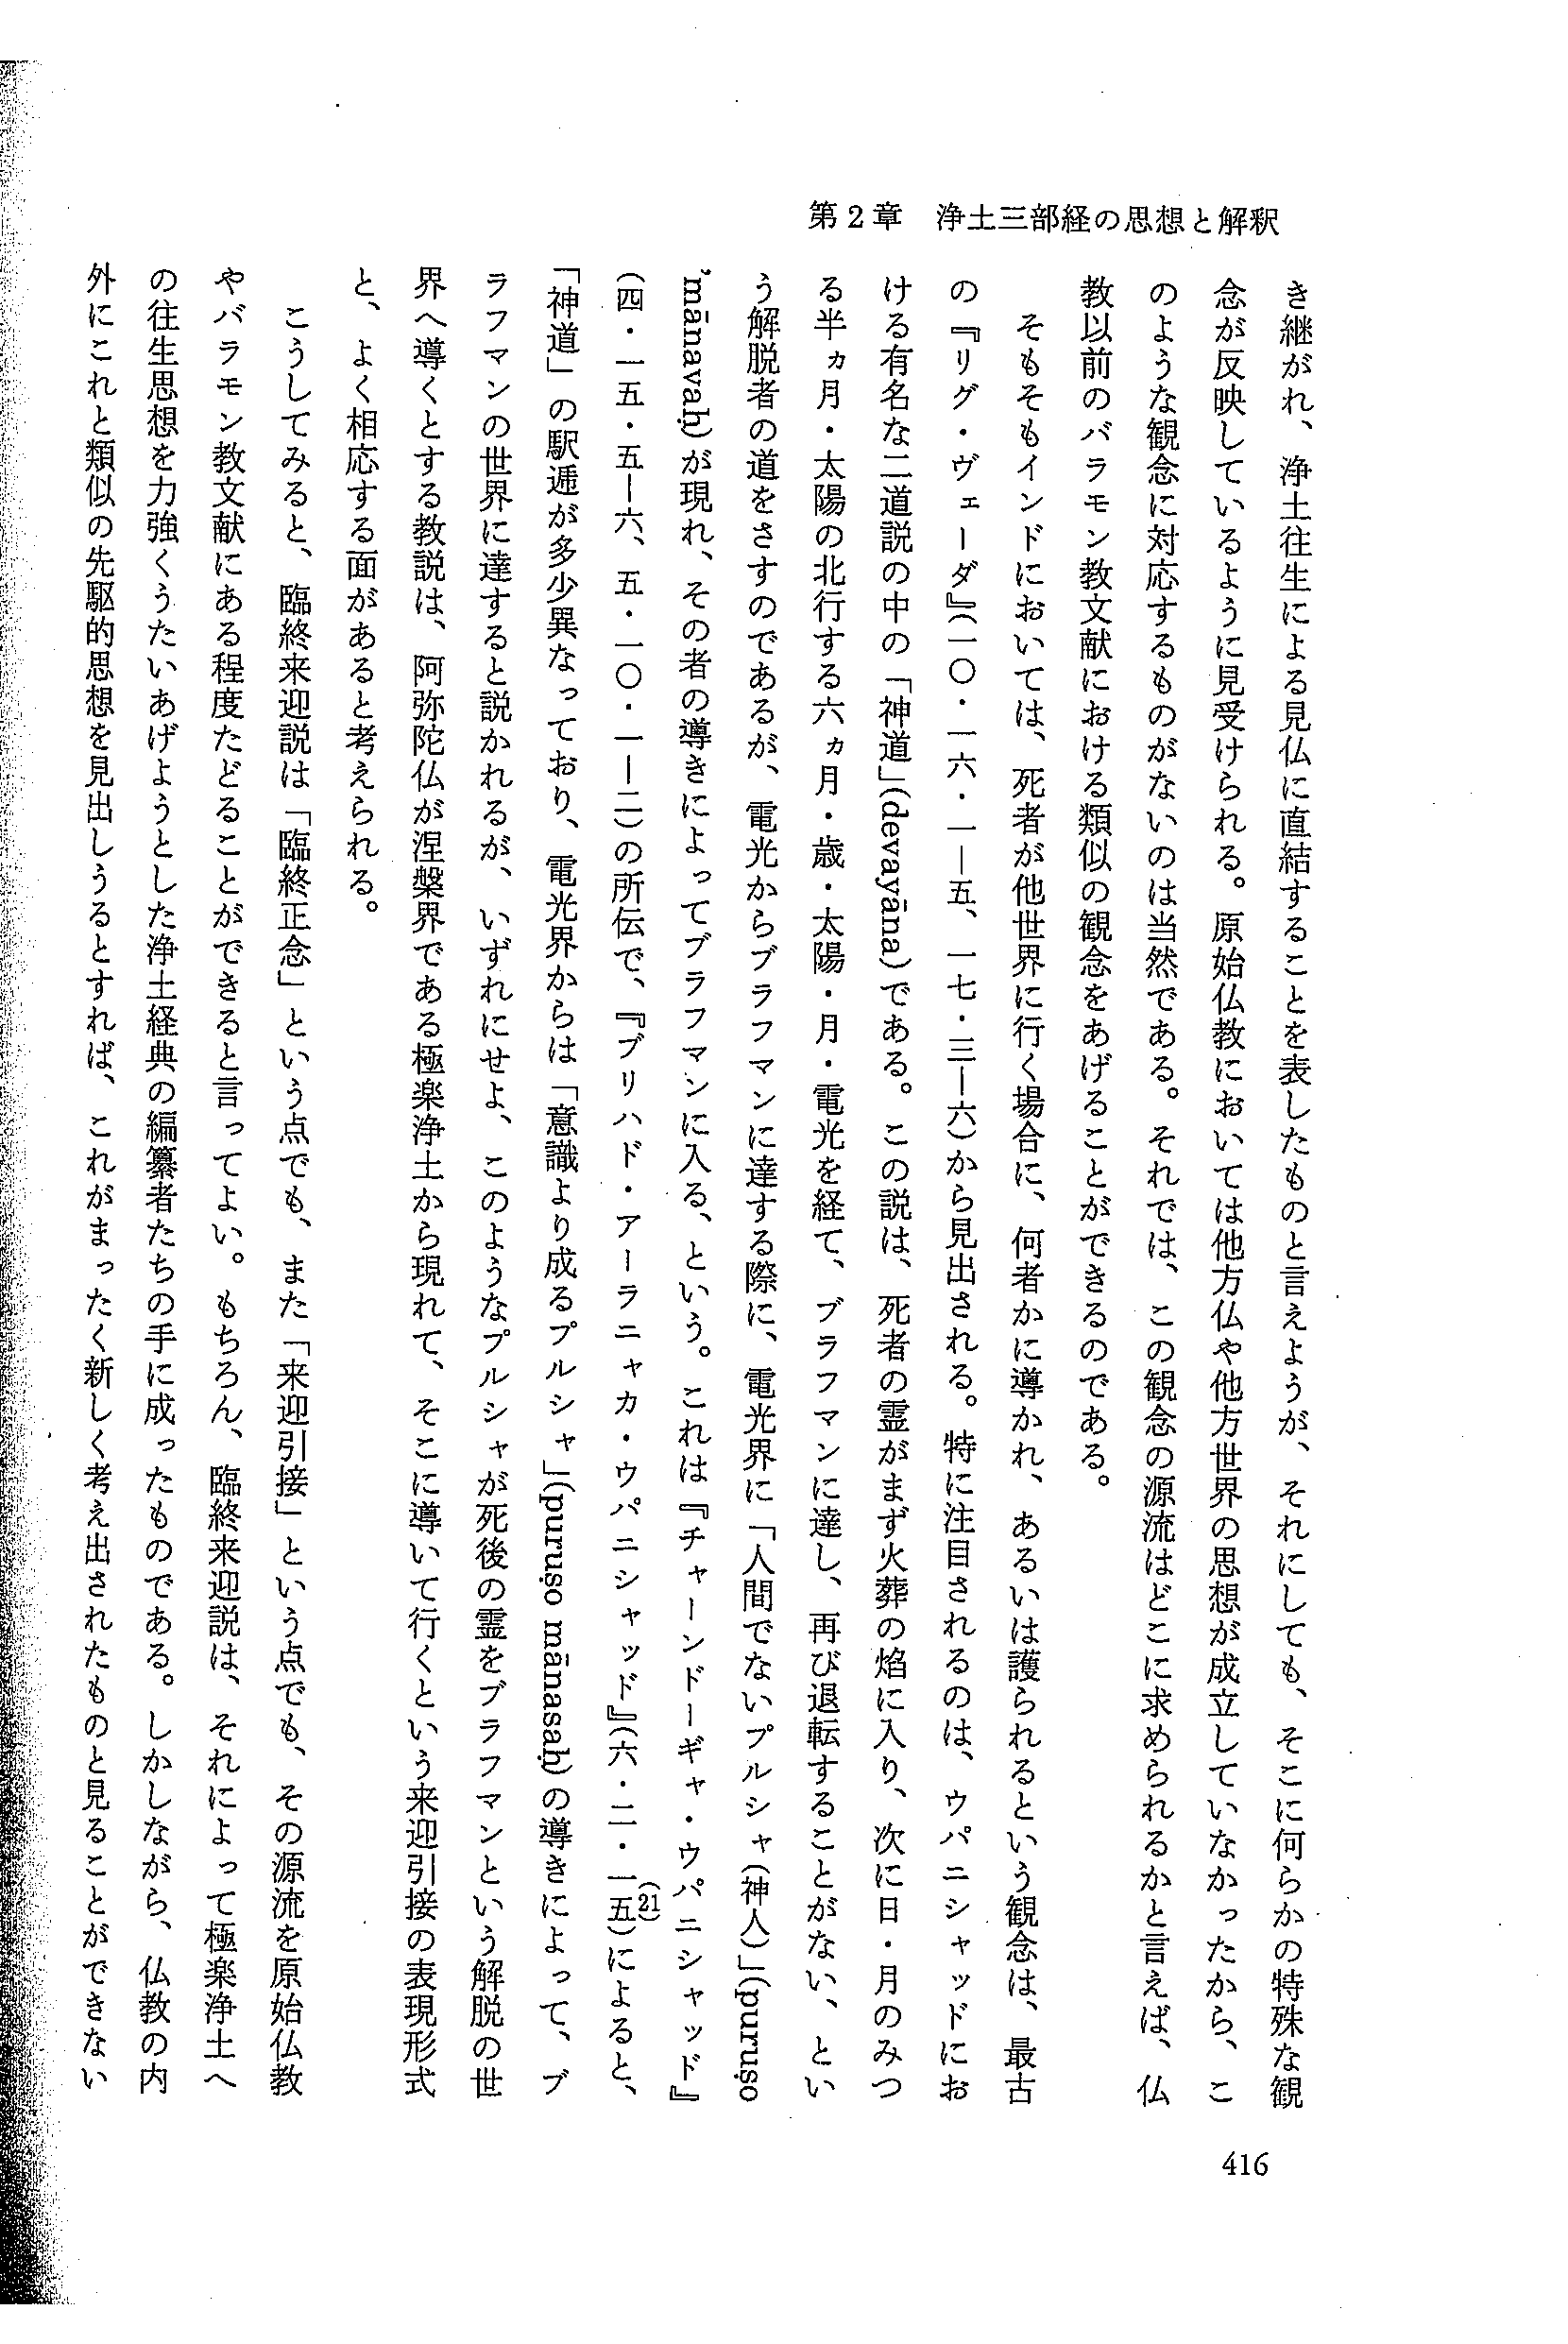 第2章　浄土三部経の思想と解釈
き継がれ、浄土往生による見仏に直結することを表したものと言えようが、それにしても、そこに何らかの特殊な観
念が反映しているように見受けられる。原始仏教においては他方仏や他方世界の思想が成立していなかったから、こ
のような観念に対応するものがないのは当然である。それでは、この観念の源流はどこに求められるかと言えば、仏
教以前のバラモン教文献における類似の観念をあげることができるのである。
　そもそもインドにおいては、死者が他世界に行く場合に、何者かに導かれ、あるいは護られるという観念は、最古
の『リグ・ヴェーダ』(一〇・一六・一―五、一七・三―六)から見出される。特に注目されるのは、ウパニシャッドにお
ける有名な二道説の中の「神道」(devayāna)である。この説は、死者の霊がまず火葬の焰に入り、次に日・月のみつ
る半ヵ月・太陽の北行する六ヵ月・歳・太陽・月・電光を経て、ブラフマンに達し、再び退転することがない、とい
う解脱者の道をさすのであるが、電光からブラフマンに達する際に、電光界に「人間でないプルシャ(神人)」(puruṣo
'mānavaḥ)が現れ、その者の導きによってブラフマンに入る、という。これは『チャーンドーギャ・ウパニシャッド』
(四・一五・五―六、五・一〇・一―二)の所伝で、『ブリハド・アーラニャカ・ウパニシャッド』(六・二・一五)(21)によると、
「神道」の駅逓が多少異なっており、電光界からは「意識より成るプルシャ」(puruṣo mānasaḥ)の導きによって、ブ
ラフマンの世界に達すると説かれるが、いずれにせよ、このようなプルシャが死後の霊をブラフマンという解脱の世
界へ導くとする教説は、阿弥陀仏が涅槃界である極楽浄土から現れて、そこに導いて行くという来迎引接の表現形式
と、よく相応する面があると考えられる。
　こうしてみると、臨終来迎説は「臨終正念」という点でも、また「来迎引接」という点でも、その源流を原始仏教
やバラモン教文献にある程度たどることができると言ってよい。もちろん、臨終来迎説は、それによって極楽浄土へ
の往生思想を力強くうたいあげようとした浄土経典の編纂者たちの手に成ったものである。しかしながら、仏教の内
外にこれと類似の先駆的思想を見出しうるとすれば、これがまったく新しく考え出されたものと見ることができない
416